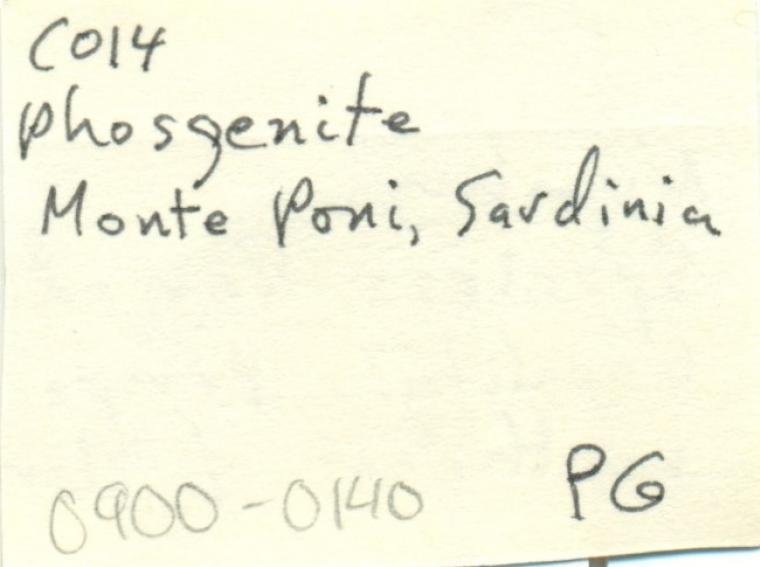 C014
Phosgenite
Monte Poni, Sardinia
0900-0140 PG